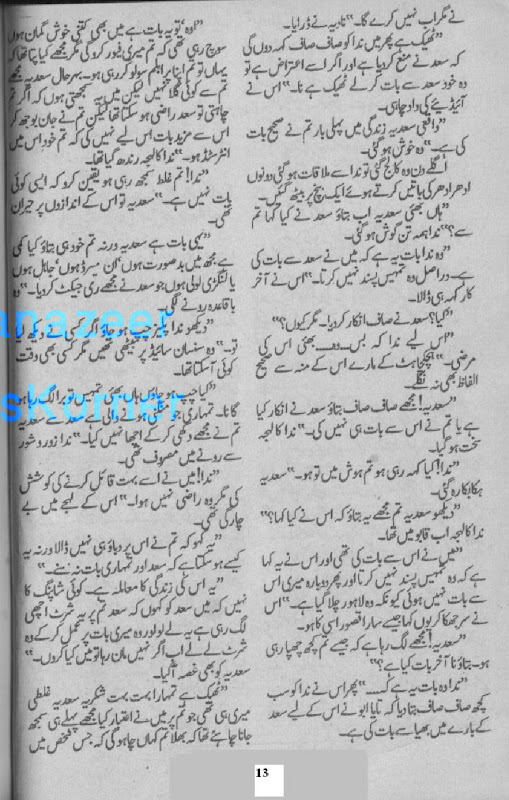 نے مگر اب نہیں کرے گا۔" نادیہ نے ڈرایا۔
"ٹھیک ہے پھر میں ندا کو صاف صاف کہہ دوں گی
کہ سعد نے منع کر دیا ہے اور اگر اسے اعتراض ہے تو
وہ خود سعد سے بات کر لے ٹھیک ہے نا۔" اس نے
آئیڈیئے کی داد چاہی۔
"واقعی سعدیہ زندگی میں پہلی بار تم نے صحیح بات
کی ہے۔" وہ خوش ہو گئی۔
اگلے دن وہ کالج گئی تو ندا سے ملاقات ہو گئی دونوں
ادھر ادھر کی باتیں کرتے ہوئے ایک بینچ پر بیٹھ گئیں۔
"ہاں بھئی سعدیہ اب بتاؤ سعد نے کیا کہا تم
سے؟" ندا ہمہ تن گوش ہو گئی۔
"وہ ندا بات یہ ہے کہ میں نے سعد سے بات کی
ہے۔ دراصل وہ تمہیں پسند نہیں کرتا۔" اس نے آخر
کار کہہ ہی ڈالا۔
"کیا؟ سعد نے صاف انکار کر دیا۔ مگر کیوں؟"
"اس لیے ندا کہ بس۔ وہ۔ بھئی اس کی
مرضی۔" ہچکچاہٹ کے مارے اس کے منہ سے صحیح
الفاظ بھی نہ نکلے۔
"سعدیہ! مجھے صاف صاف بتاؤ سعد نے انکار کیا
ہے یا تم نے اس سے بات ہی نہیں کی۔" ندا کا لہجہ
سخت ہو گیا۔
"ندا! کیا کہہ رہی ہو تم ہوش میں تو ہو۔" سعدیہ
ہکا بکا رہ گئی۔
"دیکھو سعدیہ تم مجھے یہ بتاؤ کہ اس نے کیا کہا؟"
ندا کا لہجہ اب قابو میں تھا۔
"میں نے اس سے بات کی تھی اور اس نے یہ کہا
ہے کہ وہ تمہیں پسند نہیں کرتا اور پھر دوبارہ میری اس
سے بات نہیں ہوئی کیونکہ وہ لاہور چلا گیا ہے۔" اس
نے سر جھکا کر یوں کہا جیسے سارا قصور اسی کا ہو۔
"سعدیہ! مجھے لگ رہا ہے کہ جیسے تم کچھ چھپا رہی
ہو۔ بتاؤ نا آخر بات کیا ہے؟"
"ندا وہ بات یہ ہے کہ....." پھر اس نے ندا کو سب
کچھ صاف صاف بتا دیا کہ تایا ابو نے اس کے لیے سعد
کے بارے میں بھیا سے بات کی ہے۔
"اوہ! تو یہ بات ہے میں بھی کتنی خوش گمان ہوں
سوچ رہی تھی کہ تم میری فیور کرو گی مگر مجھے کیا پتا تھا کہ
یہاں تو تم اپنا پرابلم سولو کر رہی ہو۔ بہرحال سعدیہ مجھے
تم سے کوئی گلا نہیں لیکن میں یہ سمجھتی ہوں کہ اگر تم
چاہتی تو سعد راضی ہو سکتا تھا لیکن تم نے جان بوجھ کر
اس سے مزید بات اس لیے نہیں کی کہ تم خود اس میں
انٹرسٹڈ ہو۔" ندا کا لہجہ رندھ گیا تھا۔
"ندا! تم غلط سمجھ رہی ہو یقین کرو کہ ایسی کوئی
بات نہیں ہے۔" سعدیہ تو اس کے اندازوں پر حیران
تھی۔
"یہی بات ہے سعدیہ ورنہ تم خود ہی بتاؤ کیا کمی
ہے مجھ میں بد صورت ہوں، ان میرڈ ہوں، جاہل ہوں
یا لنگڑی لولی ہوں جو سعد نے مجھے ری جیکٹ کر دیا۔" وہ
باقاعدہ رونے لگی۔
"دیکھو ندا پلیز چپ ہو جاؤ اگر کسی نے دیکھ لیا
تو۔" وہ سنسان سائیڈ پر بیٹھی تھیں مگر کسی بھی وقت
کوئی آ سکتا تھا۔
"کیا چپ ہو جاؤں ہاں بھئی تمہیں تو برا لگ رہا ہو
گا نا۔ تمہاری جو منگنی ہونے والی ہے سعد سے سعدیہ
تم نے مجھے دکھی کر کے اچھا نہیں کیا۔" ندا زور و شور
سے رونے میں مصروف تھی۔
"ندا! میں نے اسے بہت قائل کرنے کی کوشش
کی مگر وہ راضی نہیں ہوا۔" اس کے لہجے میں بے
چارگی تھی۔
"یہ کہو کہ تم نے اس پر دباؤ ہی نہیں ڈالا ورنہ یہ
کیسے ہو سکتا ہے کہ سعد اور تمہاری بات نہ سنے۔"
"یہ اس کی زندگی کا معاملہ ہے۔ کوئی شاپنگ کا
نہیں کہ میں سعد کو کہوں کہ سعد تم پر یہ شرٹ اچھی
لگ رہی ہے یہ لے لو اور وہ میری بات پر عمل کر کے وہ
شرٹ لے لے اب اگر نہیں مان رہا تو میں کیا کروں۔"
سعدیہ کو بھی غصہ آ گیا۔
"ٹھیک ہے تمہارا بہت بہت شکریہ سعدیہ غلطی
میری ہی تھی جو تم پر میں نے اعتبار کیا مجھے پہلے ہی سمجھ
جانا چاہئے تھا کہ بھلا تم کہاں چاہو گی کہ جس شخص میں
anazeer
sKorner
13